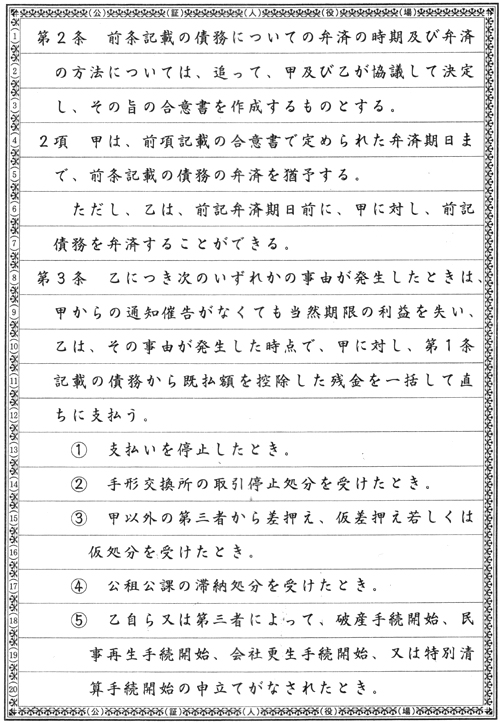 (公)(証)(人)(役)(場)
1 第2条 前条記載の債務についての弁済の時期及び弁済
2 の方法については、追って、甲及び乙が協議して決定
3 し、その旨の合意書を作成するものとする。
4 2項 甲は、前項記載の合意書で定められた弁済期日ま
5 で、前条記載の債務の弁済を猶予する。
6 ただし、乙は、前記弁済期日前に、甲に対し、前記
7 債務を弁済することができる。
8 第3条 乙につき次のいずれかの事由が発生したときは、
9 甲からの通知催告がなくても当然期限の利益を失い、
10 乙は、その事由が発生した時点で、甲に対し、第1条
11 記載の債務から既払額を控除した残金を一括して直
12 ちに支払う。
13 ① 支払いを停止したとき。
14 ② 手形交換所の取引停止処分を受けたとき。
15 ③ 甲以外の第三者から差押え、仮差押え若しくは
16 仮処分を受けたとき。
17 ④ 公租公課の滞納処分を受けたとき。
18 ⑤ 乙自ら又は第三者によって、破産手続開始、民
19 事再生手続開始、会社更生手続開始、又は特別清
20 算手続開始の申立てがなされたとき。
(公)(証)(人)(役)(場)